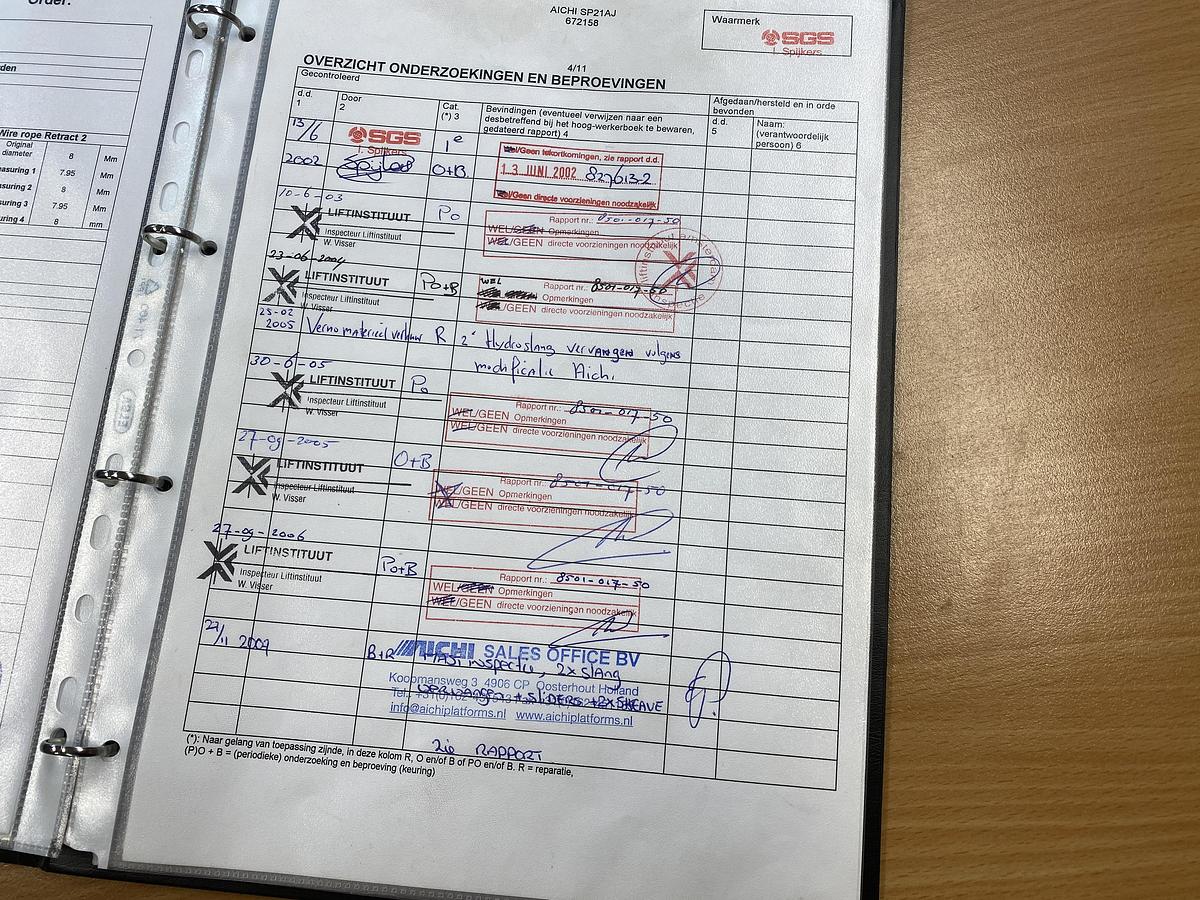 Order:
den
Wire rope Retract 2
Original diameter 8 Mm
asuring 1 7.95 Mm
asuring 2 8 Mm
suring 3 7.95 Mm
uring 4 8 mm
AICHI SP21AJ
672158
Waarmerk
SGS
I. Spijkers
4/11
OVERZICHT ONDERZOEKINGEN EN BEPROEVINGEN
Gecontroleerd
Afgedaan/hersteld en in orde bevonden
d.d. 1
Door 2
Cat. (*) 3
Bevindingen (eventueel verwijzen naar een
desbetreffend bij het hoog-werkerboek te bewaren,
gedateerd rapport) 4
d.d. 5
Naam: (verantwoordelijk persoon) 6
13/6
SGS
I. Spijkers
1e
Wel/Geen tekortkomingen, zie rapport d.d.
2002
O+B
13 JUNI 2002 827613-2
Wel/Geen directe voorzieningen noodzakelijk
10-6-03
LIFTINSTITUUT
Inspecteur Liftinstituut
W. Visser
Po
Rapport nr.: 8501-017-50
WEL/GEEN Opmerkingen
WEL/GEEN directe voorzieningen noodzakelijk
23-06-2004
LIFTINSTITUUT
Inspecteur Liftinstituut
W. Visser
Po+B
WEL
Rapport nr.: 8501-017-50
Opmerkingen
/GEEN directe voorzieningen noodzakelijk
25-02
2005
R 2e Hydroslang vervangen volgens
modificatie Aichi.
30-6-05
LIFTINSTITUUT
Inspecteur Liftinstituut
W. Visser
Po
Rapport nr.: 8501-017-50
WEL/GEEN Opmerkingen
WEL/GEEN directe voorzieningen noodzakelijk
27-09-2005
LIFTINSTITUUT
Inspecteur Liftinstituut
W. Visser
O+B
Rapport nr.: 8501-017-50
WEL/GEEN Opmerkingen
WEL/GEEN directe voorzieningen noodzakelijk
27-09-2006
LIFTINSTITUUT
Inspecteur Liftinstituut
W. Visser
Po+B
Rapport nr.: 8501-017-50
WEL/GEEN Opmerkingen
WEL/GEEN directe voorzieningen noodzakelijk
B+R
AICHI SALES OFFICE BV
inspectie, 2x slang
Koopmansweg 3 4906 CP Oosterhout Holland
vervangen + sliders + 2x SHEAVE
info@aichiplatforms.nl www.aichiplatforms.nl
zie RAPPORT
(*): Naar gelang van toepassing zijnde, in deze kolom R, O en/of B of PO en/of B. R = reparatie,
(P)O + B = (periodieke) onderzoeking en beproeving (keuring)